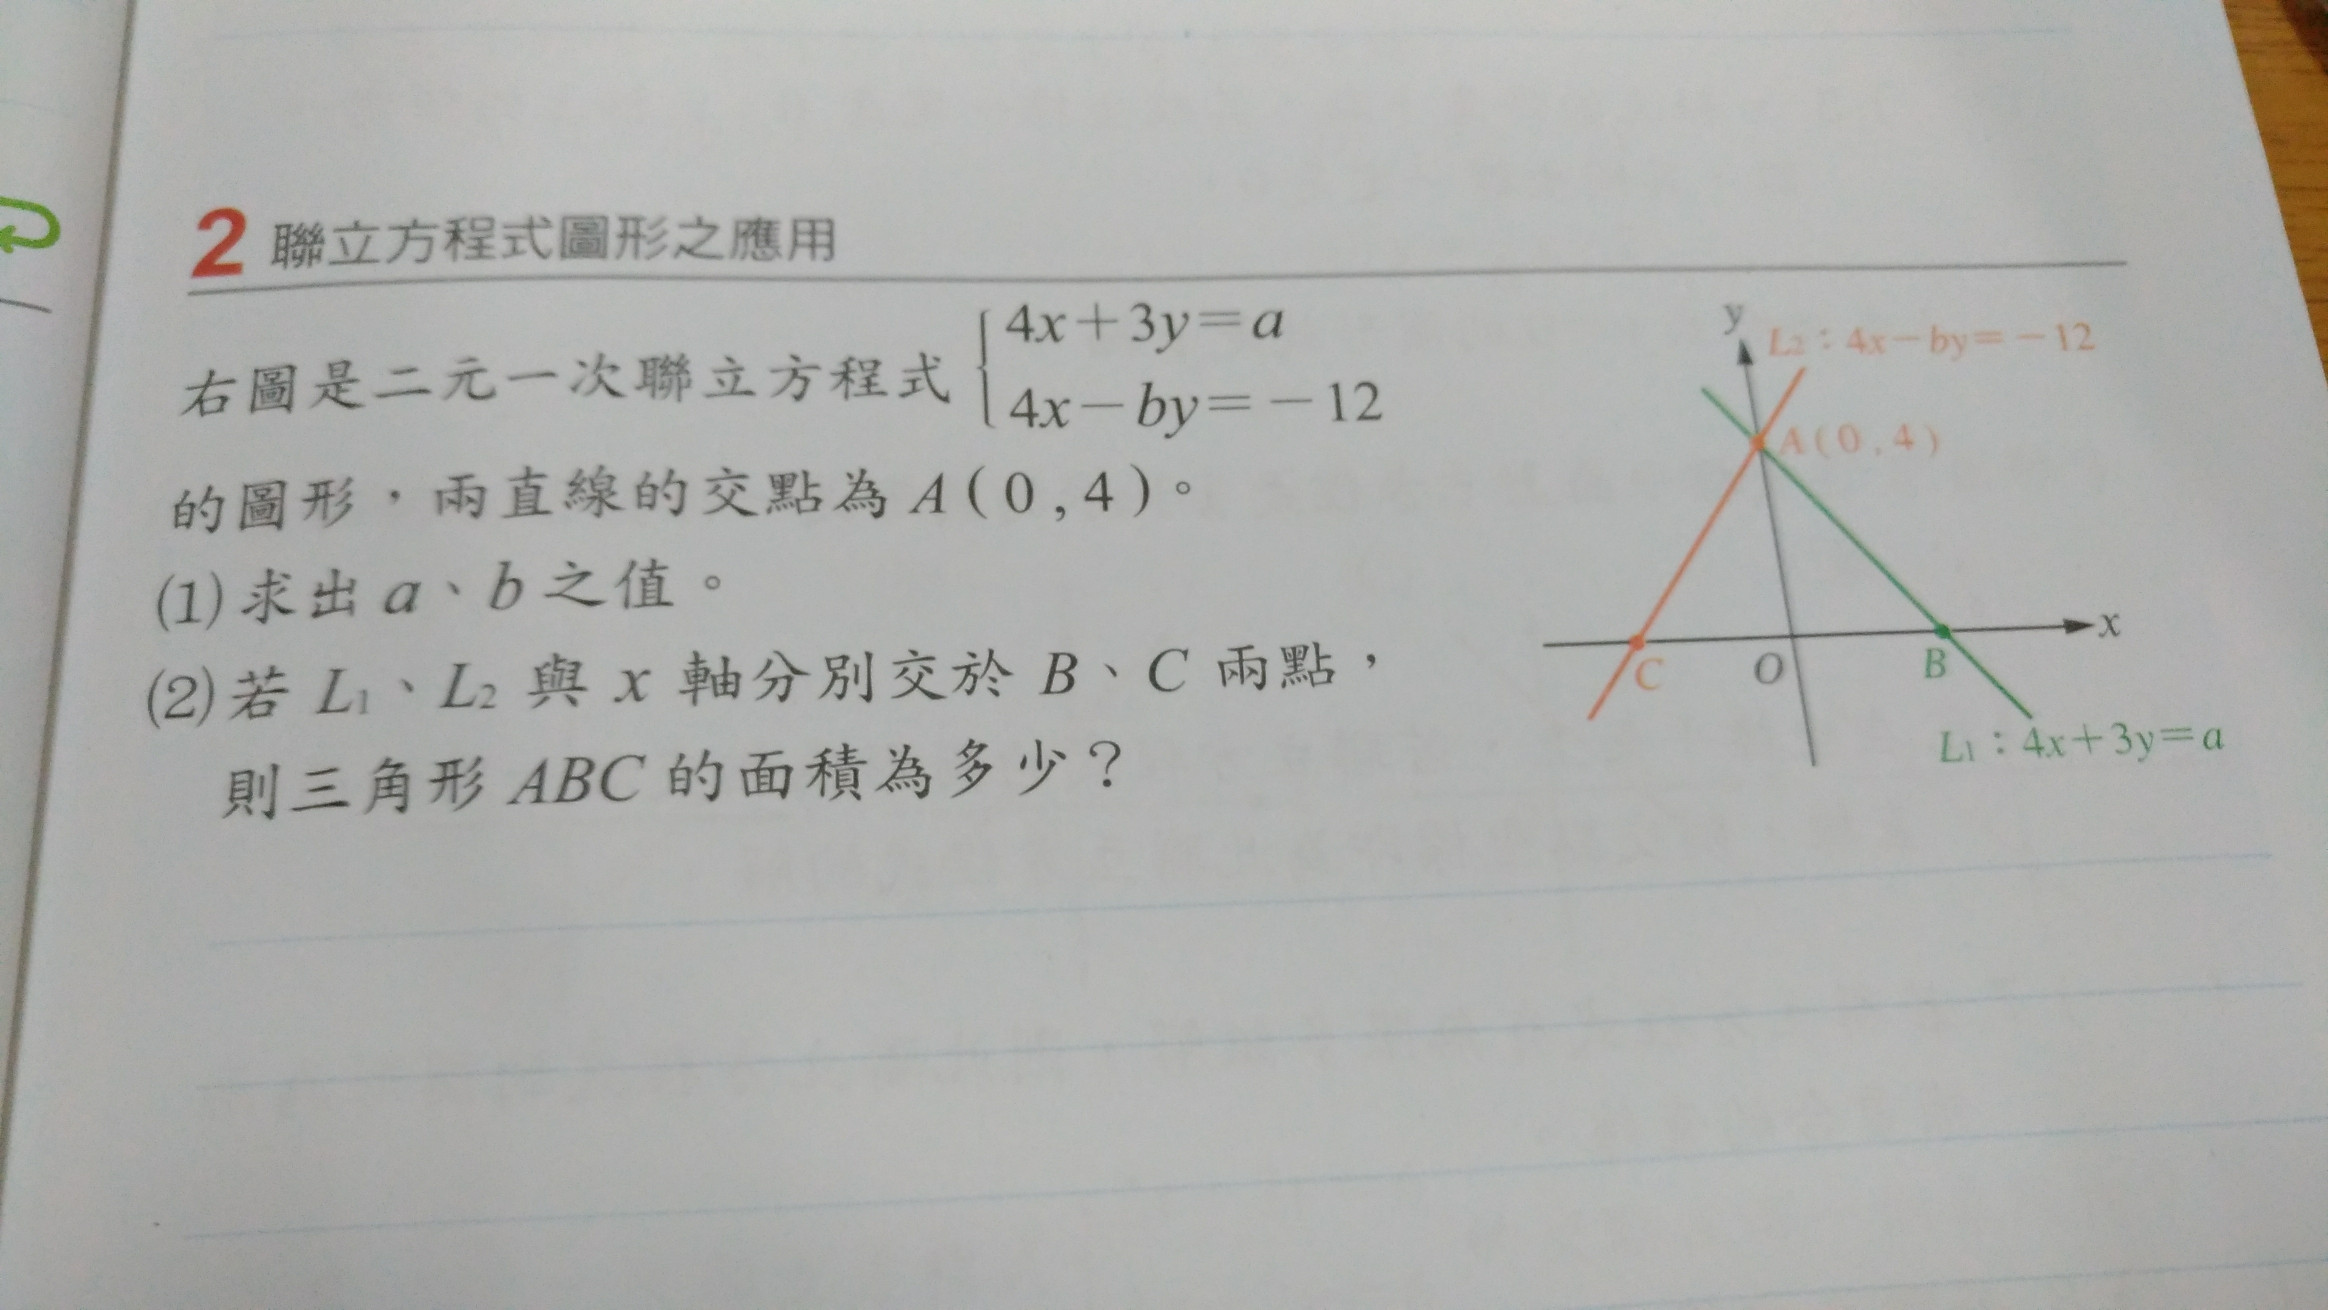 2 聯立方程式圖形之應用
右圖是二元一次聯立方程式 { 4x+3y=a
4x-by=-12
的圖形，兩直線的交點為 A(0,4)。
(1)求出 a、b 之值。
(2)若 L₁、L₂ 與 x 軸分別交於 B、C 兩點，
則三角形 ABC 的面積為多少？
y
L₂：4x-by=-12
A(0,4)
x
C
O
B
L₁：4x+3y=a